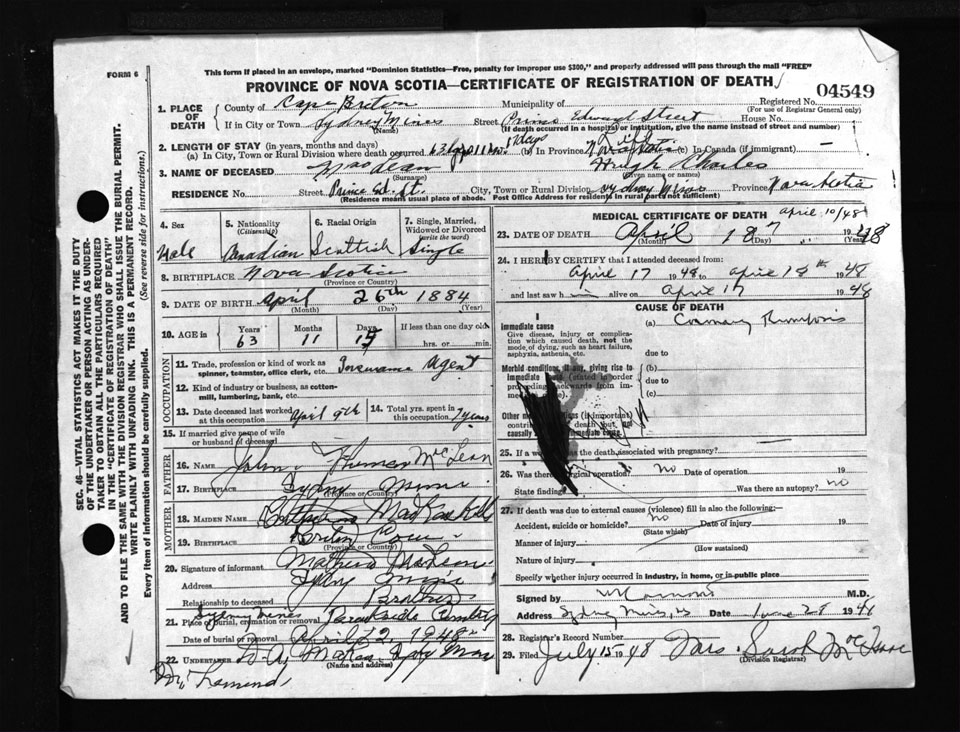 FORM 6
This form if placed in an envelope, marked "Dominion Statistics—Free, penalty for improper use $300," and properly addressed will pass through the mail "FREE"
PROVINCE OF NOVA SCOTIA—CERTIFICATE OF REGISTRATION OF DEATH
04549
1. PLACE OF DEATH
County of Cape Breton Municipality of Registered No.
(For use of Registrar General only)
If in City or Town Sydney Mines Street Prince Edward Street House No.
(Name) (If death occurred in a hospital or institution, give the name instead of street and number)
2. LENGTH OF STAY (in years, months and days)
(a) In City, Town or Rural Division where death occurred 63 11 days (b) In Province (c) In Canada (if immigrant)
3. NAME OF DECEASED Hugh Charles
(Surname) (Given name or names)
RESIDENCE No. Street Prince Ed. St. City, Town or Rural Division Sydney Mines Province Nova Scotia
(Residence means usual place of abode. Post Office Address for residents in rural parts not sufficient)
4. Sex Male
5. Nationality (Citizenship) Canadian
6. Racial Origin Scottish
7. Single, Married, Widowed or Divorced (write the word) Single
8. BIRTHPLACE Nova Scotia
(Province or Country)
9. DATE OF BIRTH April 26th 1884
(Month) (Day) (Year)
10. AGE in Years Months Days If less than one day old
63 11 hrs. or min.
OCCUPATION
11. Trade, profession or kind of work as spinner, teamster, office clerk, etc. Insurance Agent
12. Kind of industry or business, as cotton-mill, lumbering, bank, etc.
13. Date deceased last worked at this occupation April 9th
14. Total yrs. spent in this occupation 7 years
15. If married give name of wife or husband of deceased
FATHER
16. NAME John Thomas McLean
17. BIRTHPLACE Sydney Mines
(Province or Country)
MOTHER
18. MAIDEN NAME MacKaskill
19. BIRTHPLACE
(Province or Country)
20. Signature of informant
Address Sydney Mines
Relationship to deceased Brother
21. Place of burial, cremation or removal Sydney Mines Brookside Cemetery
Date of burial or removal April 1948
22. UNDERTAKER
(Name and address)
MEDICAL CERTIFICATE OF DEATH April 10/48
23. DATE OF DEATH April 1948
(Month) (Day) (Year)
24. I HEREBY certify that I attended deceased from:
April 17 1948 to April 18th 1948
and last saw h alive on April 17 1948
CAUSE OF DEATH
I
Immediate cause
Give disease, injury or complication which caused death, not the mode of dying, such as heart failure, asphyxia, asthenia, etc.
(a)
due to
Morbid conditions, if any, giving rise to immediate
(b)
due to
(c)
Other
25. If a was the death associated with pregnancy?
26. Was there a surgical operation? no Date of operation 19
State findings Was there an autopsy? no
27. If death was due to external causes (violence) fill in also the following:—
Accident, suicide or homicide? no Date of injury 19
(State which)
Manner of injury
(How sustained)
Nature of injury
Specify whether injury occurred in industry, in home, or in public place
Signed by M.D.
Address Sydney Mines, NS Date June 28 1948
28. Registrar's Record Number
29. Filed July 15 1948 Mrs. Sarah McIsaac
(Division Registrar)
SEC. 46—VITAL STATISTICS ACT MAKES IT THE DUTY
OF THE UNDERTAKER OR PERSON ACTING AS UNDER-
TAKER TO OBTAIN ALL THE PARTICULARS REQUIRED
IN THE "CERTIFICATE OF REGISTRATION OF DEATH"
AND TO FILE THE SAME WITH THE DIVISION REGISTRAR WHO SHALL ISSUE THE BURIAL PERMIT.
WRITE PLAINLY WITH UNFADING INK. THIS IS A PERMANENT RECORD.
Every item of information should be carefully supplied. (See reverse side for instructions.)